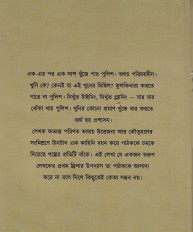 এক-এর পর এক লাশ খুঁজে পায় পুলিশ। অথচ পরিচয়হীন।
খুনি কে? কেনই বা এই খুনের মিছিল? কুলকিনারা করতে
পারে না পুলিশ। নিখুঁত টাইমিং, নিখুঁত প্ল্যানিং — বার বার
ধোঁকা খায় পুলিশ। খুনির কোনো প্রমাণ খুঁজে বার করতে
ব্যর্থ হয় প্রশাসন।
লেখক অত্যন্ত পরিণত ভাষায় উত্তেজনা আর কৌতূহলের
সংমিশ্রণে টানটান এক কাহিনি বয়ন করে পাঠককে চমকে
দিয়েছে গল্পের প্রতিটি বাঁকে। এই লেখা যে একজন তরুণ
লেখকের প্রথম থ্রিলার উপন্যাস তা পাঠককে আলাদা
করে না বলে দিলে কিছুতেই বোঝা সম্ভব নয়।